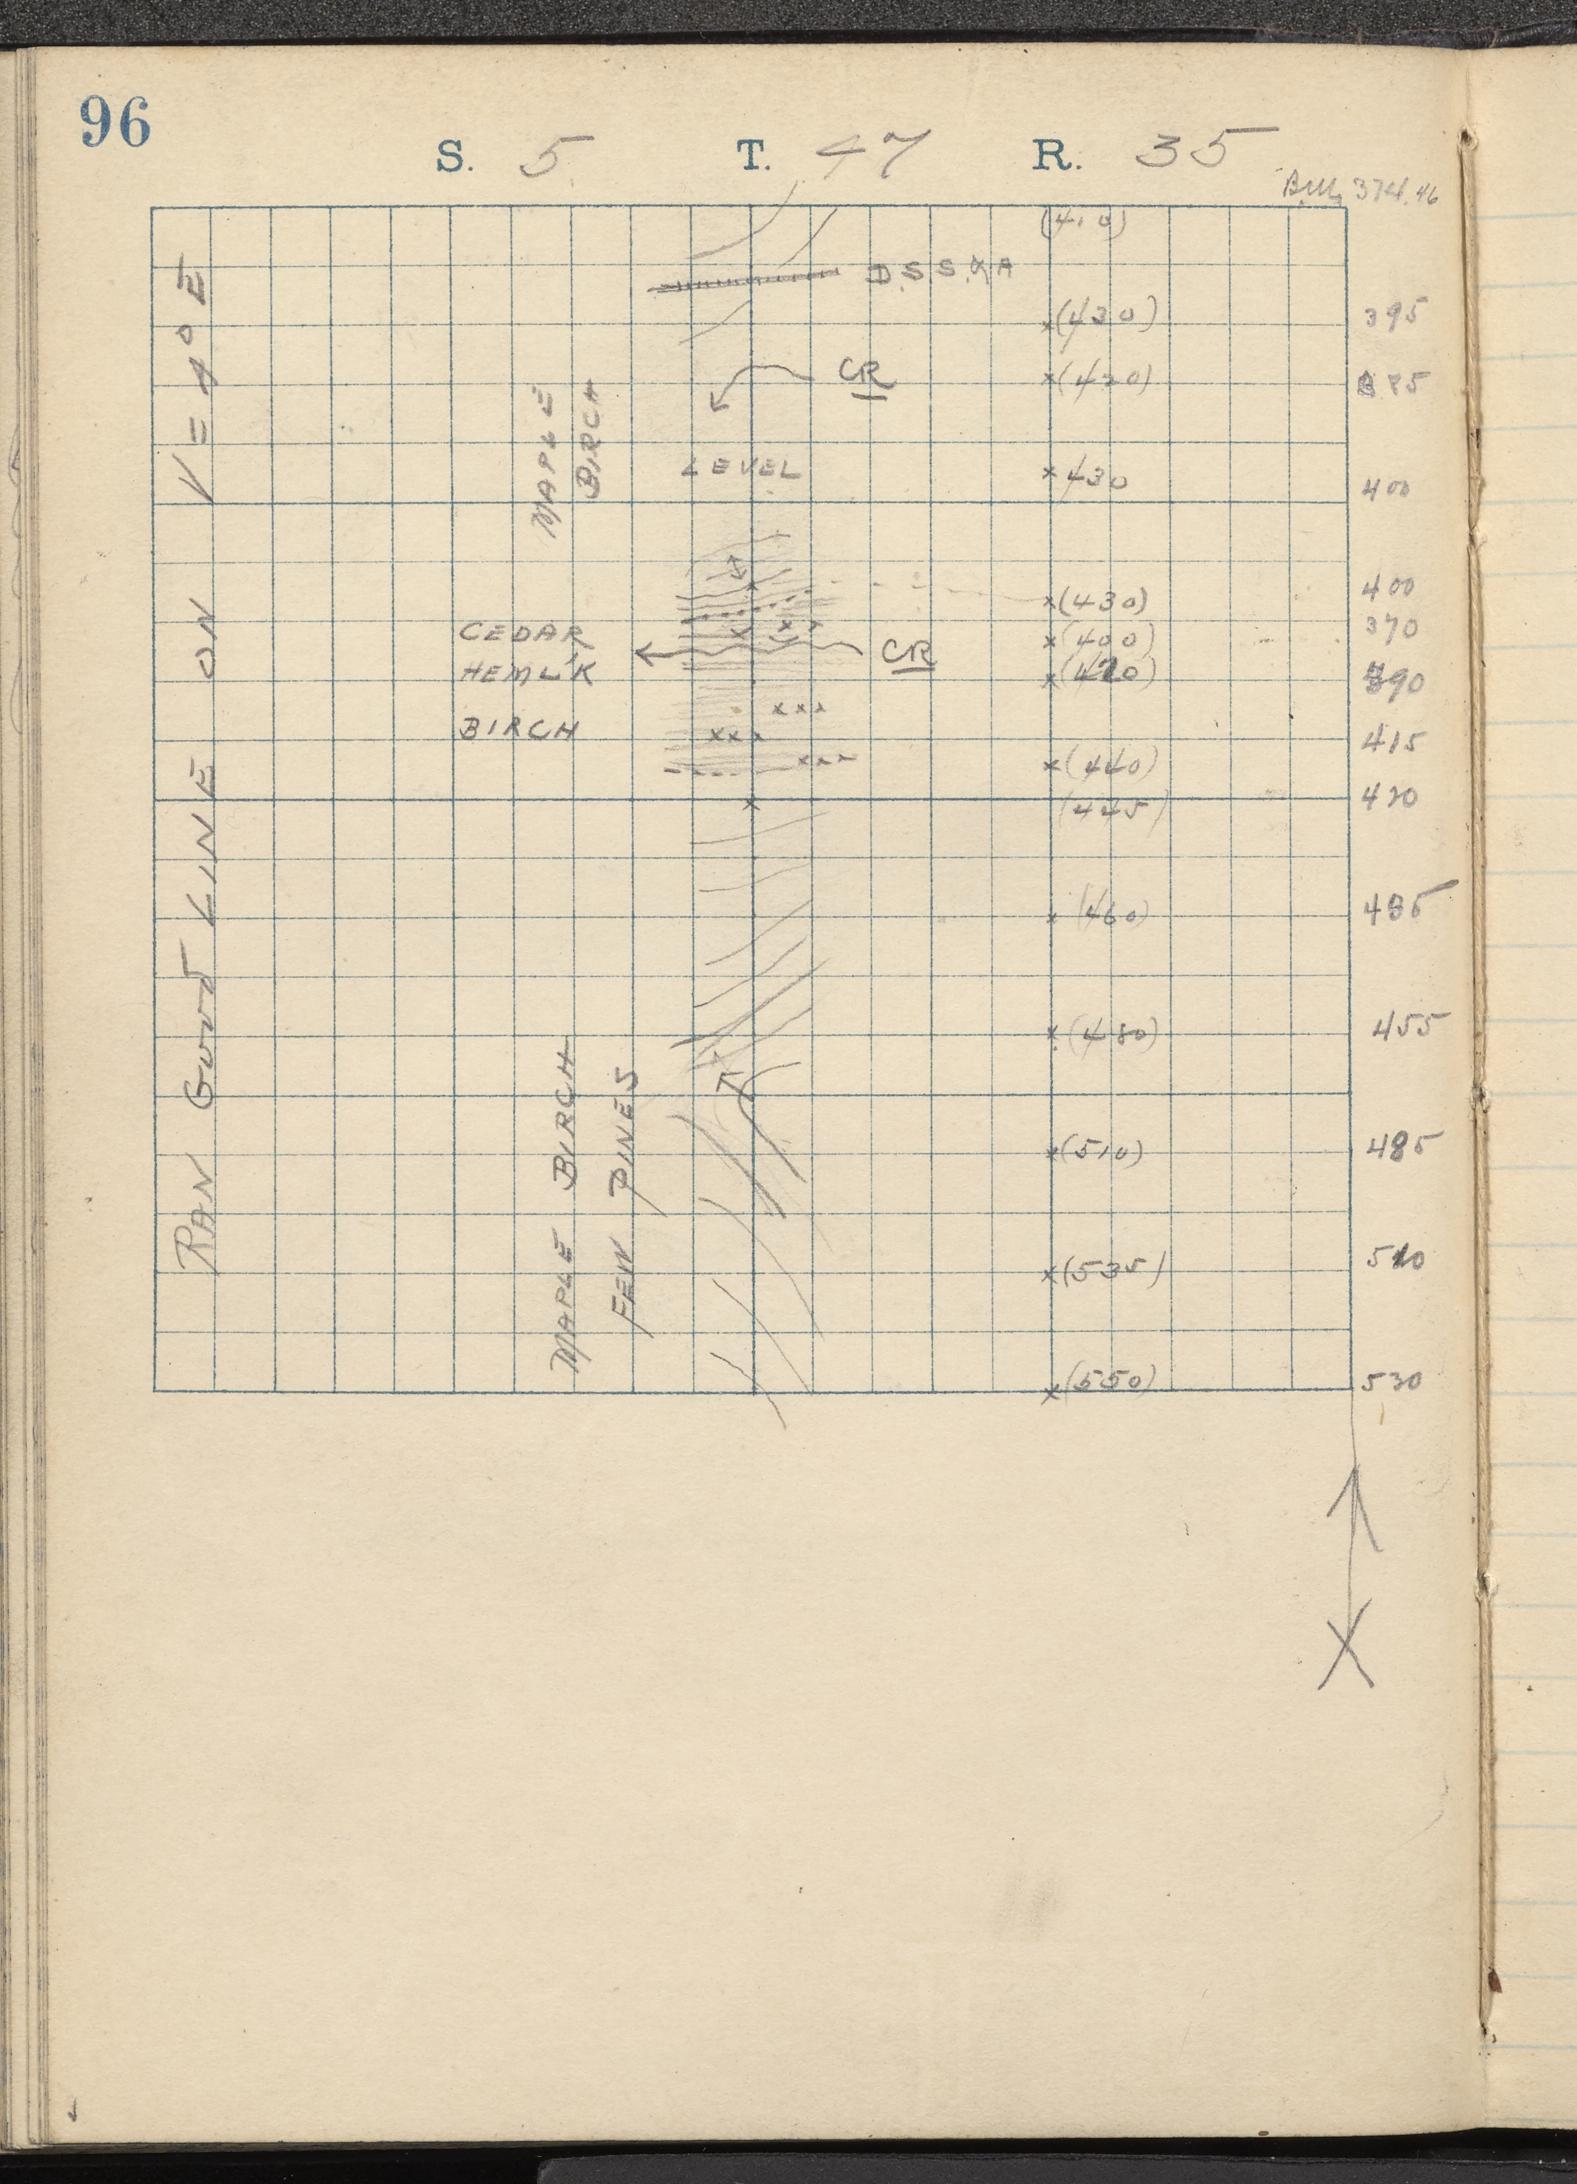 96
S. 5 T. 47 R. 35
374.46
(410)
D.S.S. & A
(430) 395
CR
(420)
MAPLE
BIRCH
LEVEL
430
400
400
(430)
370
CEDAR
(400)
CR
HEML'K
390
BIRCH
415
(440)
420
(445)
(460)
(480) 455
(510) 485
(535) 510
(550) 530
MAPLE BIRCH
FEW PINES
RAN GOOD LINE ON V = 4° E